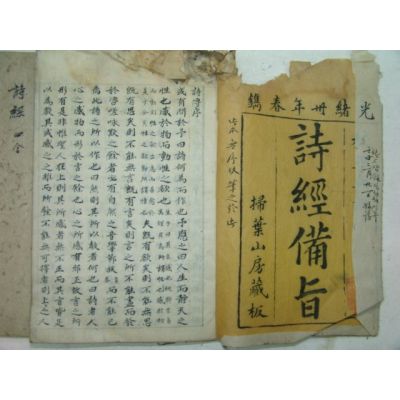 光緒卅年春鐫
詩經備旨
掃葉山房藏板
詩傳序
或有問於予曰詩何為而作也予應之曰人生而靜天之
性也感於物而動性之欲也夫既有欲矣則不能無思
既有思矣則不能無言既有言矣則言之所不能盡而發
於咨嗟咏歎之餘者必有自然之音響節族而不能已
焉此詩之所以作也曰然則其所以教者何也曰詩者人
心之感物而形於言之餘也心之所感有邪正故言之所
形有是非惟聖人在上則其所感者無不正而其言皆足
以為教其或感之之雜而所發不能無可擇者則上之人
詩經